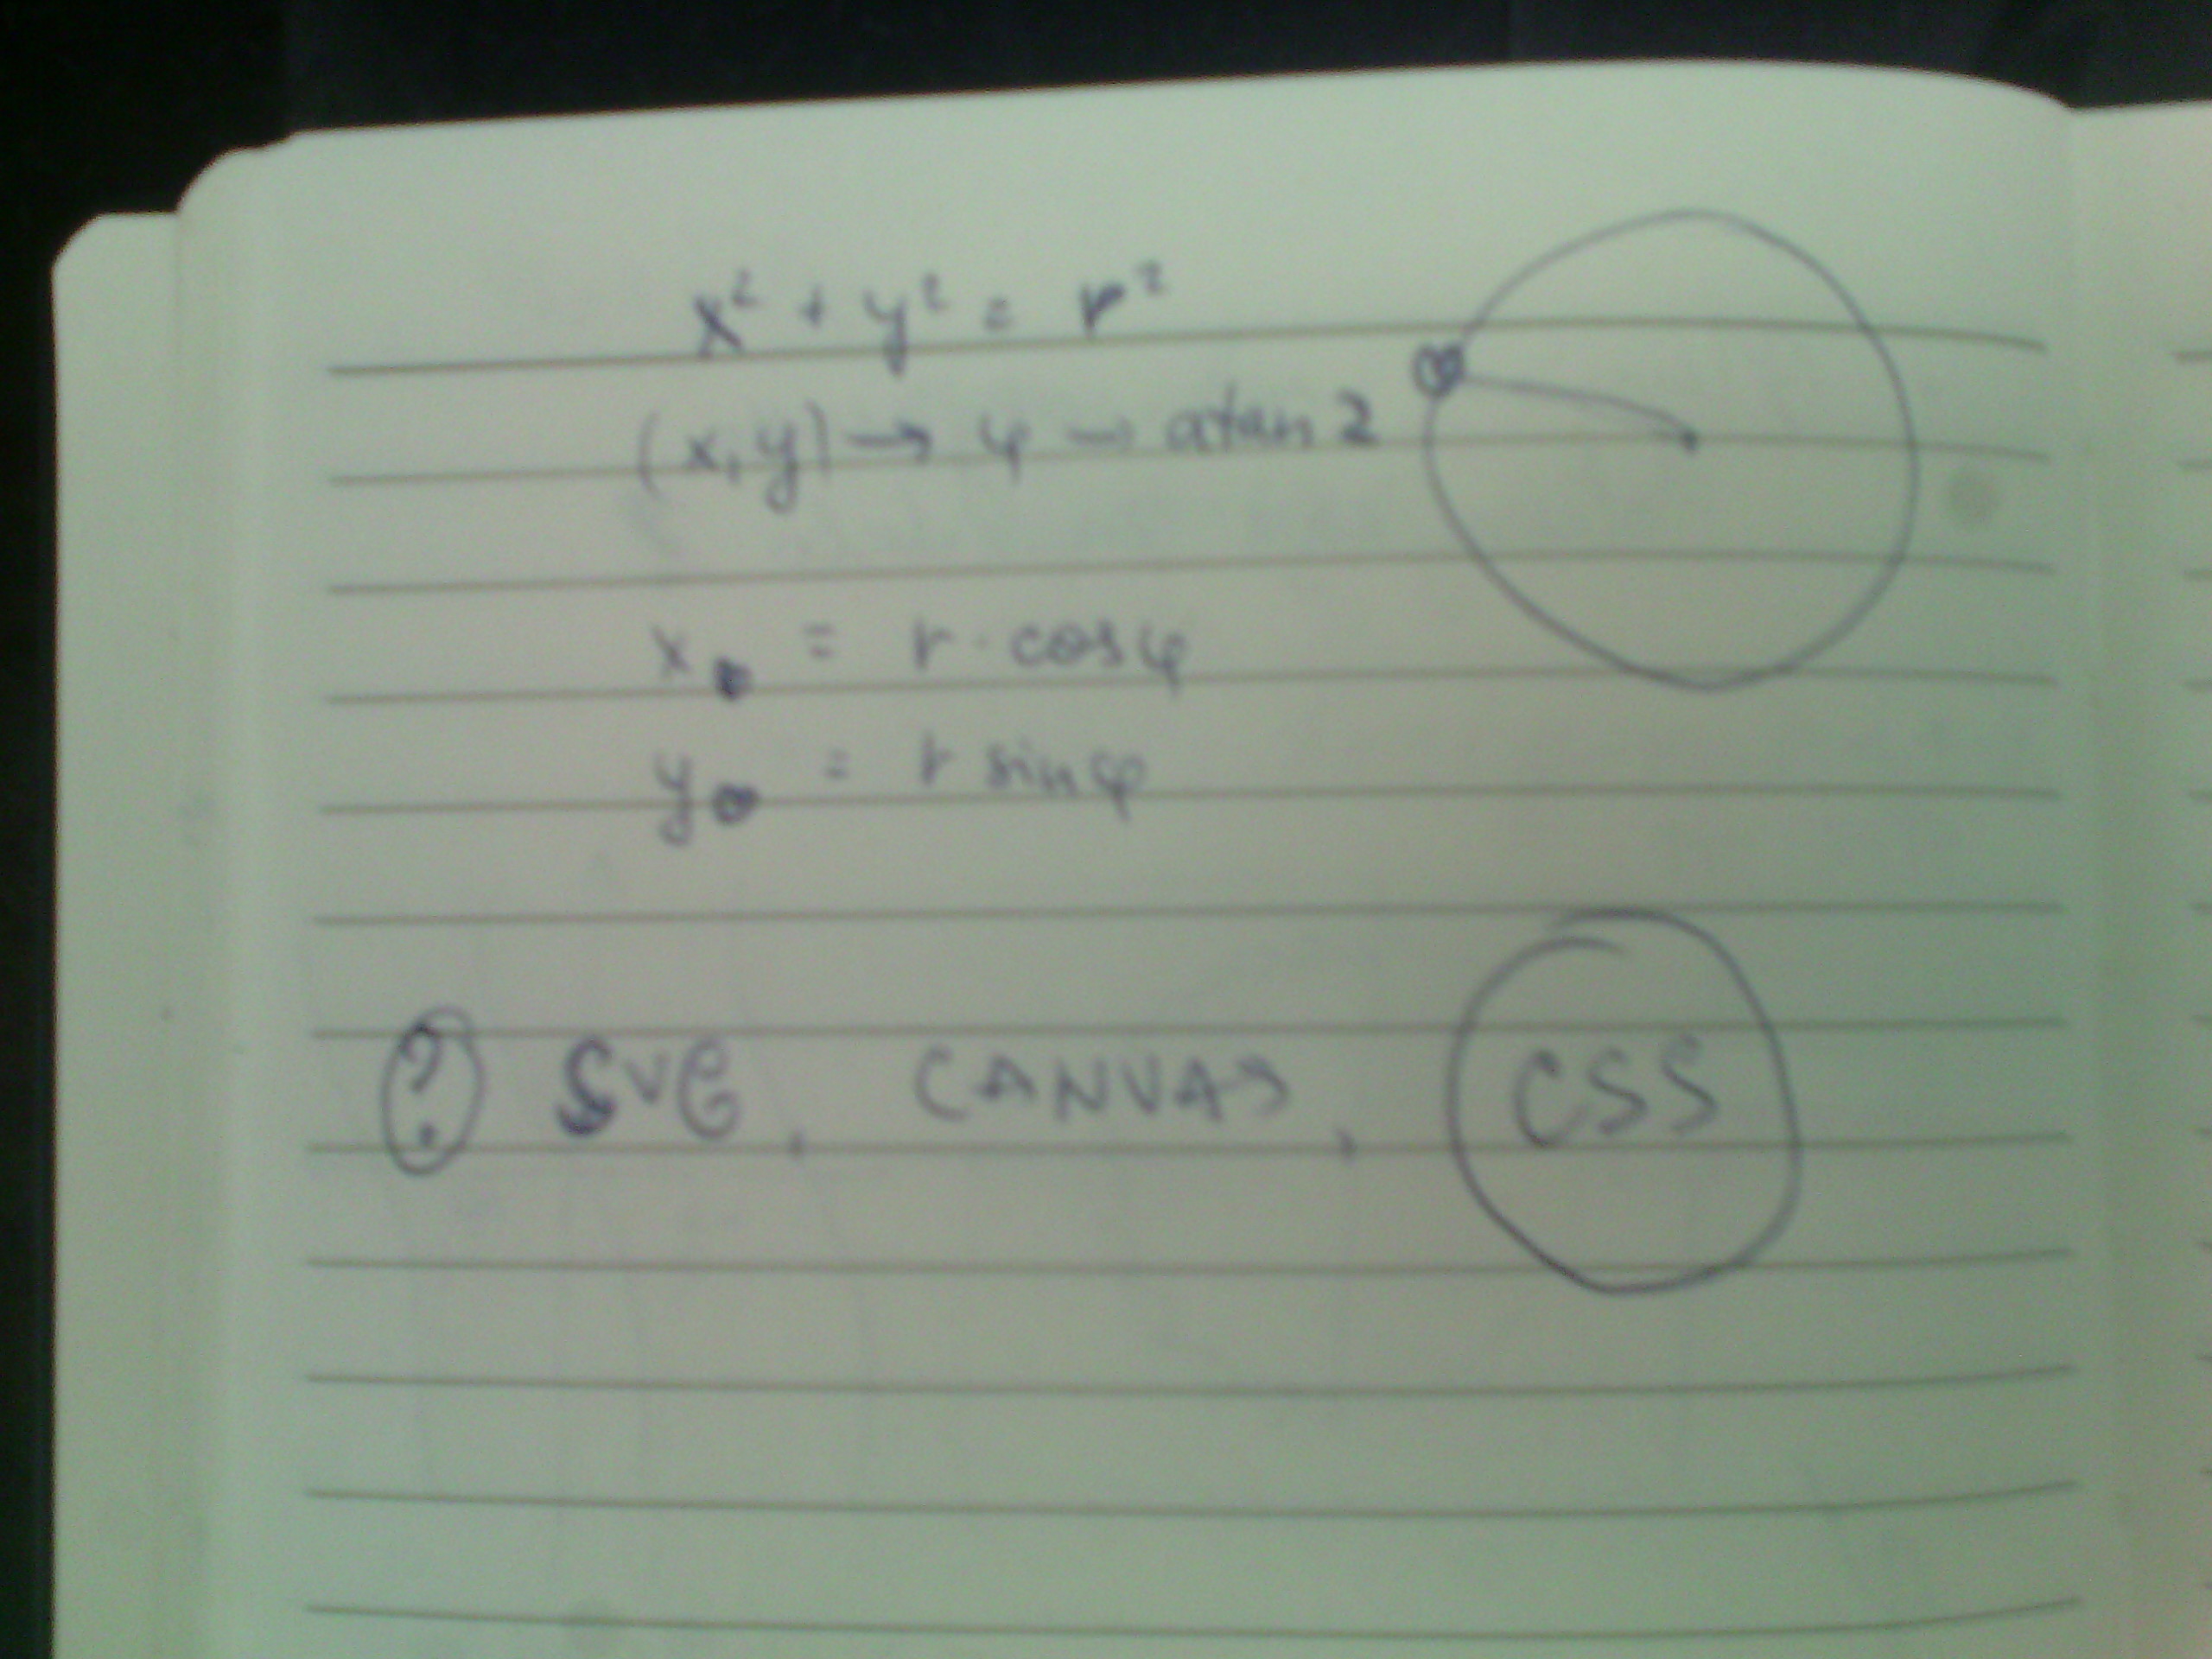 x² + y² = r²
(x, y) → φ → atan2
x = r · cos φ
y = r sin φ
? SVG, CANVAS, CSS